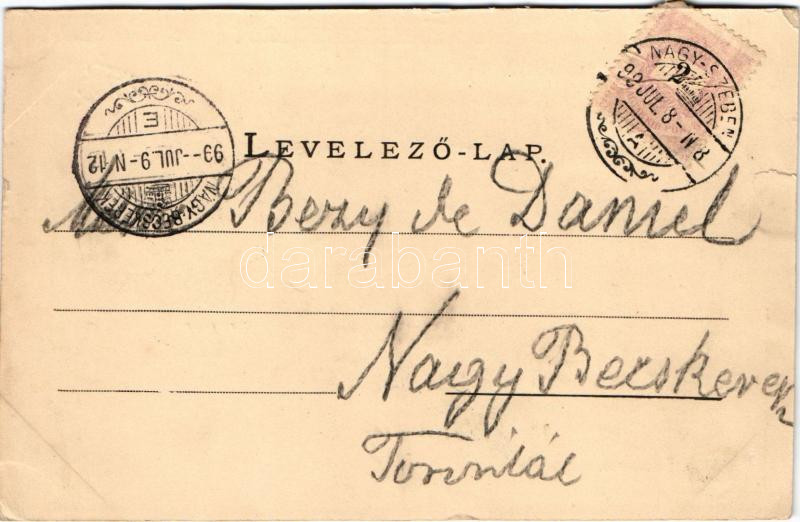 NAGY-SZEBEN
99 JUL. 8-N 8
A
E
99--JUL. 9-N 12
NAGY-BECSKEREK
LEVELEZŐ-LAP.
Bezy de Daniel
darabanth
Nagy Becskerek
Torontál